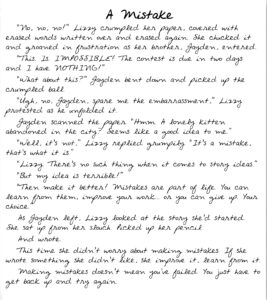 A Mistake
"No, no, no!" Lizzy crumpled her paper, covered with
erased words written over and erased again. She chucked it
and groaned in frustration as her brother, Jayden, entered.
"This. Is. IMPOSSIBLE! The contest is due in two days
and I have NOTHING!"
"What about this?" Jayden bent down and picked up the
crumpled ball.
"Ugh, no, Jayden, spare me the embarrassment," Lizzy
protested as he unfolded it.
Jayden scanned the paper. "Hmm. A lonely kitten
abandoned in the city? Seems like a good idea to me."
"Well, it's not." Lizzy replied grumpily. "It's a mistake,
that's what it is."
"Lizzy. There's no such thing when it comes to story ideas."
"But my idea is terrible!"
"Then make it better! Mistakes are part of life. You can
learn from them, improve your work... or you can give up. Your
choice."
As Jayden left, Lizzy looked at the story she'd started.
She sat up from her slouch. Picked up her pencil.
And wrote.
This time she didn't worry about making mistakes. If she
wrote something she didn't like, she improve it, learn from it.
Making mistakes doesn't mean you've failed. You just have to
get back up and try again.